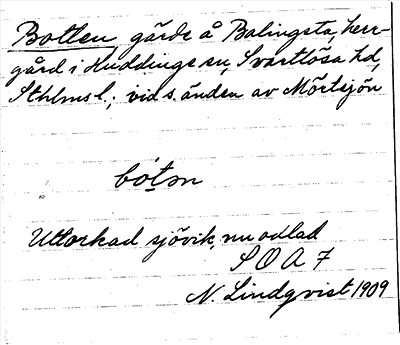 Botten, gärde å Balingsta, herr-
gård i Huddinge sn, Svartlösa hd,
Sthlms l.; vid s. änden av Mörtsjön
bótn
Uttorkad sjövik, nu odlad
S O A 7
N. Lindqvist 1909